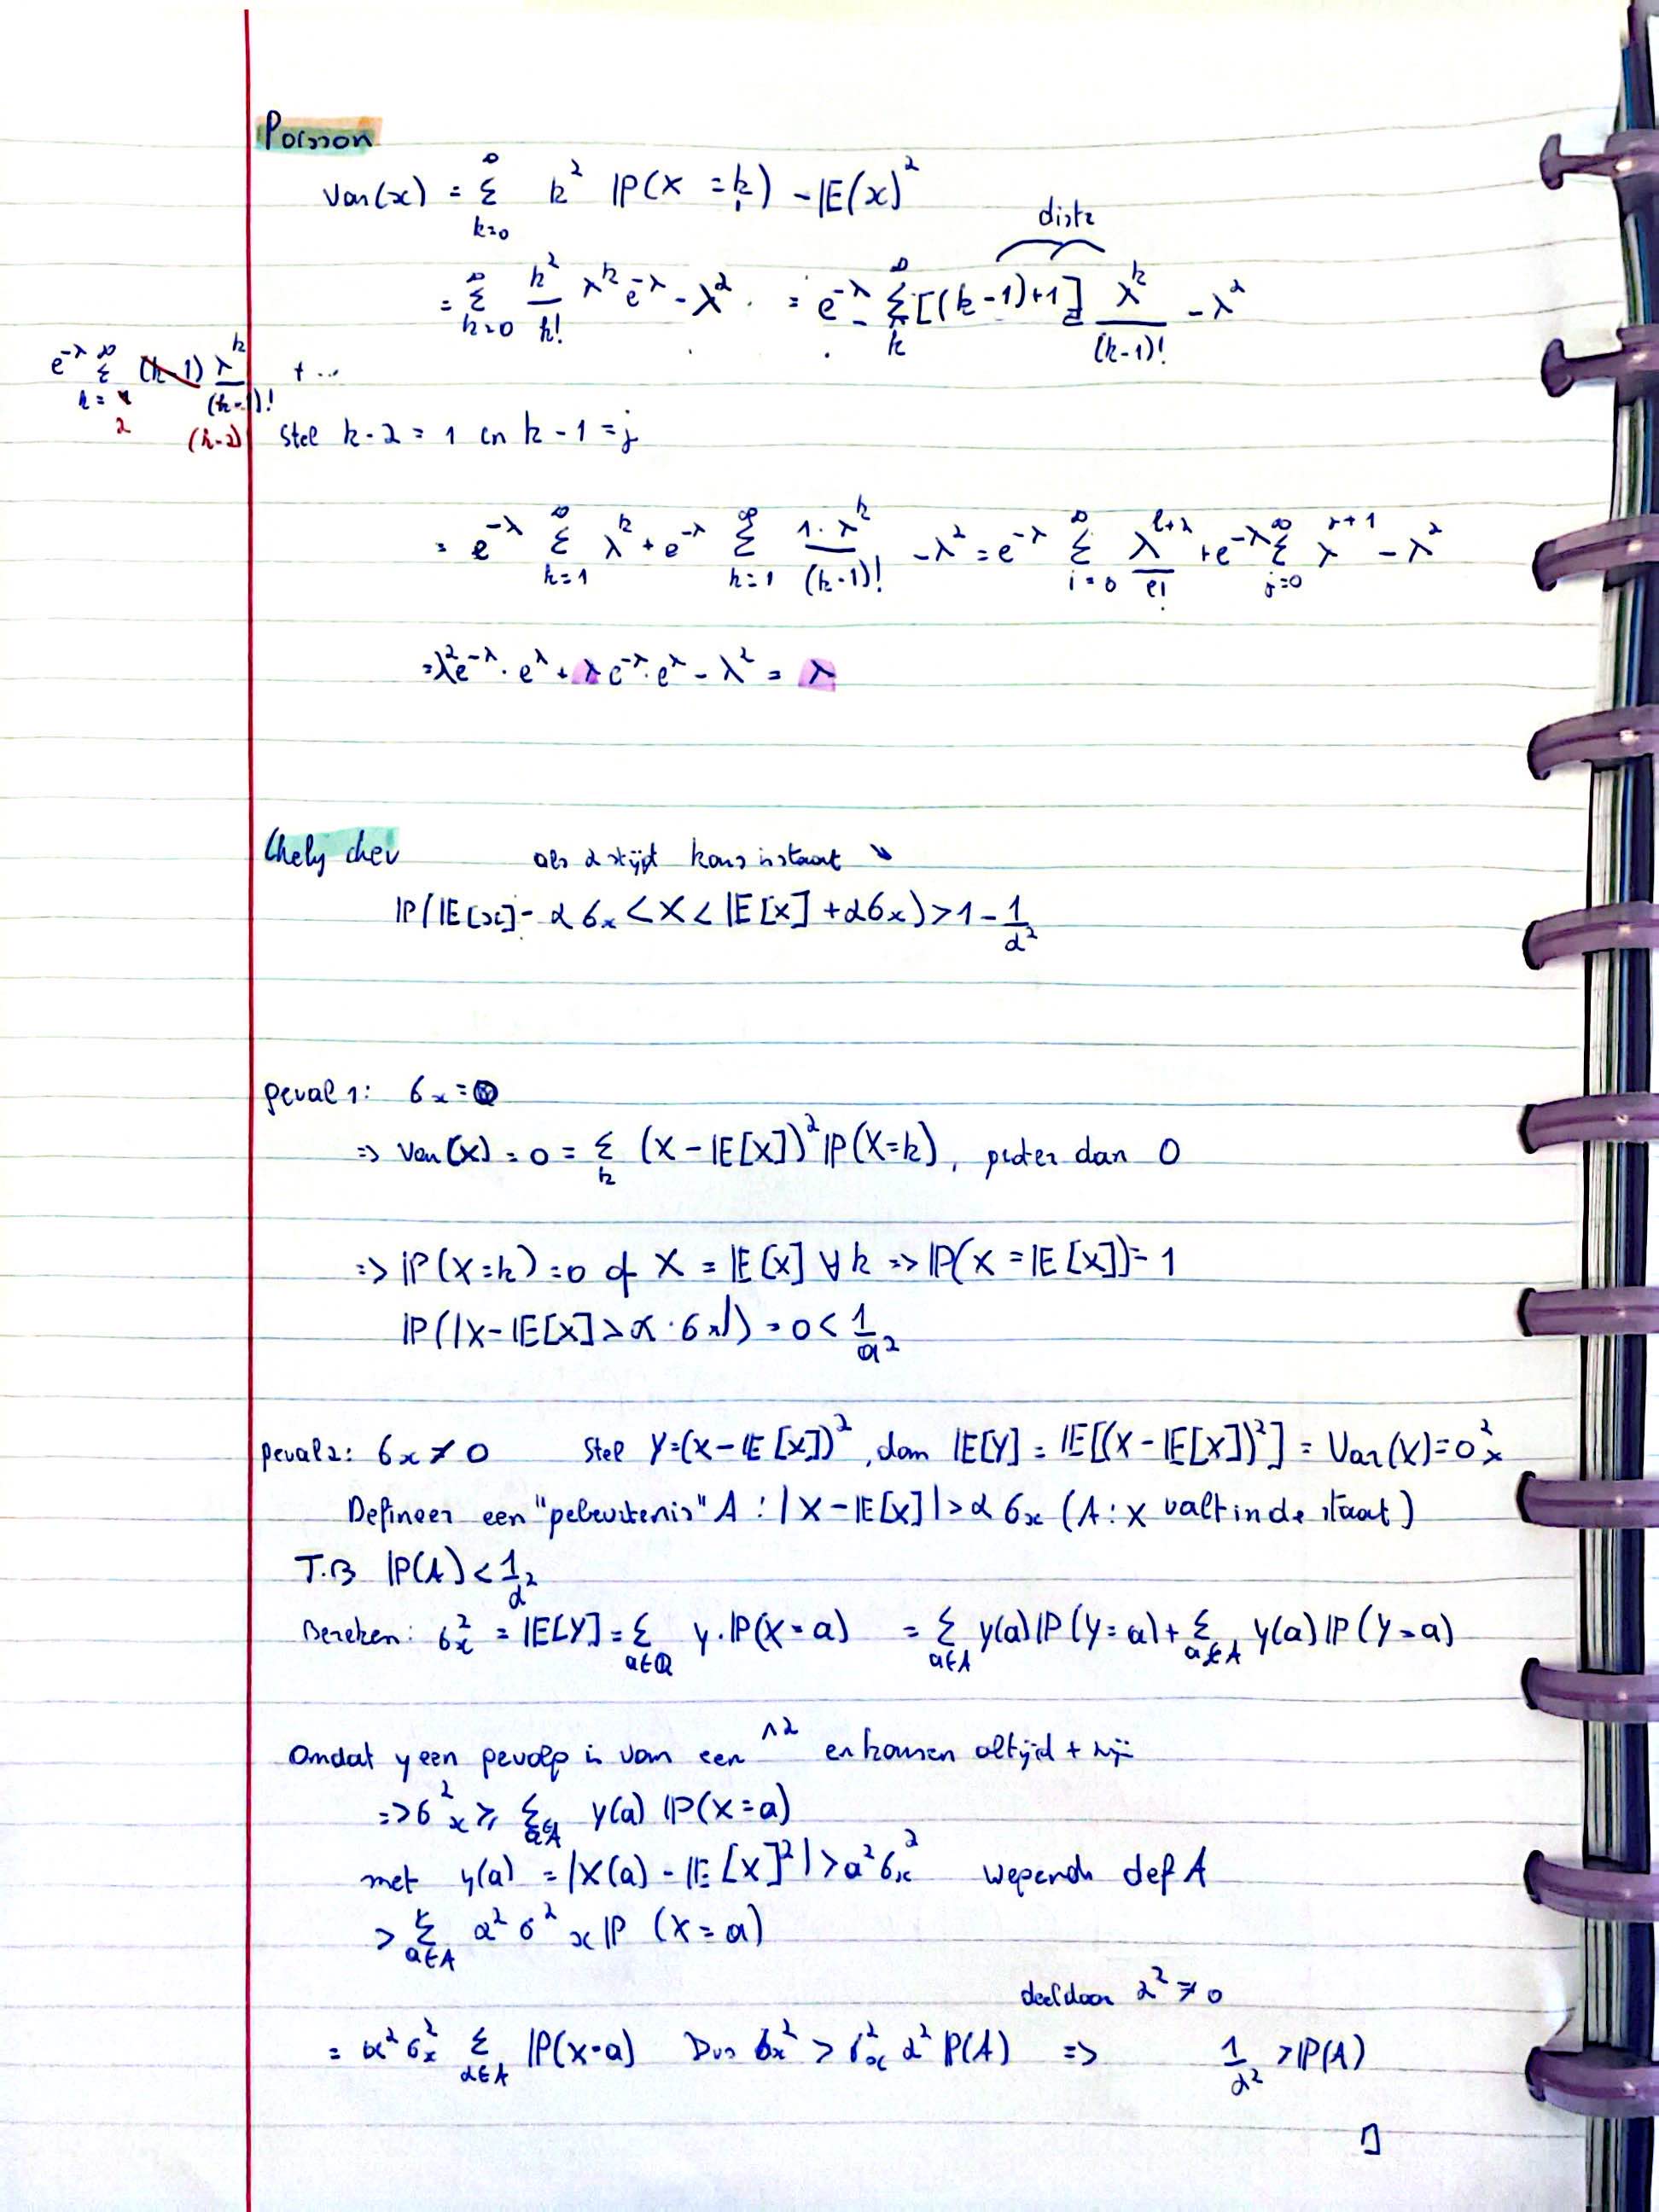 Poisson
Var(x) = Σ_{k=0}^{∞} k² ℙ(X = k) - 𝔼(x)²
distr
= Σ_{k=0}^{∞} k²/k! λ^k e^{-λ} - λ² . = e^{-λ} Σ_{k}^{∞} [(k-1)+1] λ^k/(k-1)! - λ²
e^{-λ} Σ_{k=2}^{∞} (k-1) λ^k/(k-1)! + ...
(k-2)
Stel k-2 = 1 en k-1 = j
= e^{-λ} Σ_{k=1}^{∞} λ^k + e^{-λ} Σ_{k=1}^{∞} 1·λ^k/(k-1)! - λ² = e^{-λ} Σ_{i=0}^{∞} λ^{l+2}/l! + e^{-λ} Σ_{j=0}^{∞} λ^{r+1} - λ²
= λ² e^{-λ} · e^λ + λ e^{-λ} · e^λ - λ² = λ
Chebychev als α stijgt kans in staart ↘
ℙ(𝔼[x] - α σx < X < 𝔼[x] + α σx) > 1 - 1/α²
geval 1: σx = 0
=> Var(X) = 0 = Σ_k (X - 𝔼[X])² ℙ(X=k), groter dan 0
=> ℙ(X=k) = 0 of X = 𝔼[x] ∀k => ℙ(X = 𝔼[x]) = 1
ℙ(|X - 𝔼[x] > α · σx|) = 0 < 1/α²
geval 2: σx ≠ 0 Stel Y = (X - 𝔼[x])², dan 𝔼[Y] = 𝔼[(X - 𝔼[X])²] = Var(X) = σ²x
Definieer een "gebeurtenis" A : |X - 𝔼[x]| > α σx (A : X valt in de staart)
T.B ℙ(A) < 1/α²
Bereken: σ²x = 𝔼[Y] = Σ_{a∈Ω} y · ℙ(X = a) = Σ_{a∈A} y(a) ℙ(Y = a) + Σ_{a∉A} y(a) ℙ(Y = a)
Omdat y een gevolg is van een ^2 en kansen altijd + zijn
=> σ²x ≥ Σ_{a∈A} y(a) ℙ(X = a)
met y(a) = |X(a) - 𝔼[X]²| > α² σx² wegens def A
> Σ_{a∈A} α² σ²x ℙ (X = a)
deel door α² ≠ 0
= α² σ²x Σ_{a∈A} ℙ(X = a) Dus σx² > σ²x α² ℙ(A) => 1/α² > ℙ(A)
▯